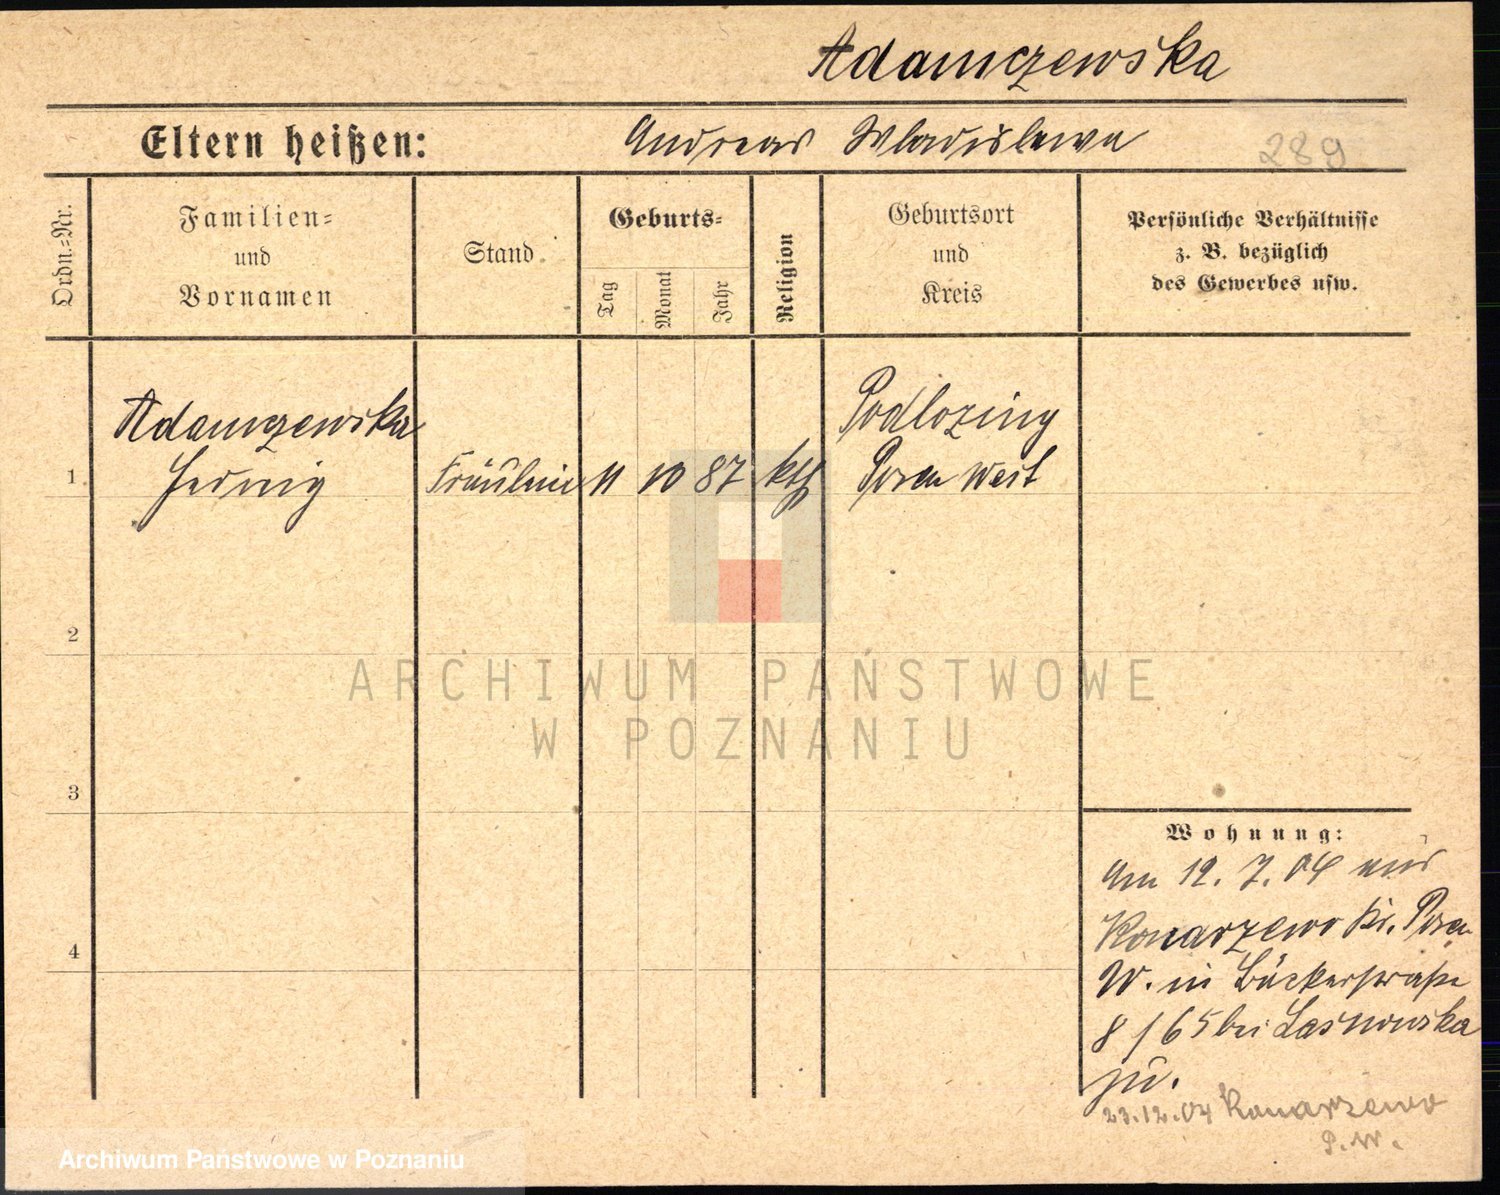 Adamczewska
Eltern heißen: Andreas Wladislawa 289
Ordn.-Nr.
Familien-
und
Vornamen
Stand
Geburts-
Tag
Monat
Jahr
Religion
Geburtsort
und
Kreis
Persönliche Verhältnisse
z. B. bezüglich
des Gewerbes usw.
1
Adamczewska
Hedwig
Fräulein 11 10 87 kth
Podloziny
Posen West
2
ARCHIWUM PAŃSTWOWE
W POZNANIU
3
Wohnung:
Am 12. 7. 04 aus
Konarzewo Kr. Posen
W. in Bäckerstraße
8/65 bei Lasnowska
zu.
4
23.12.04 Konarzewo
P. W.
Archiwum Państwowe w Poznaniu